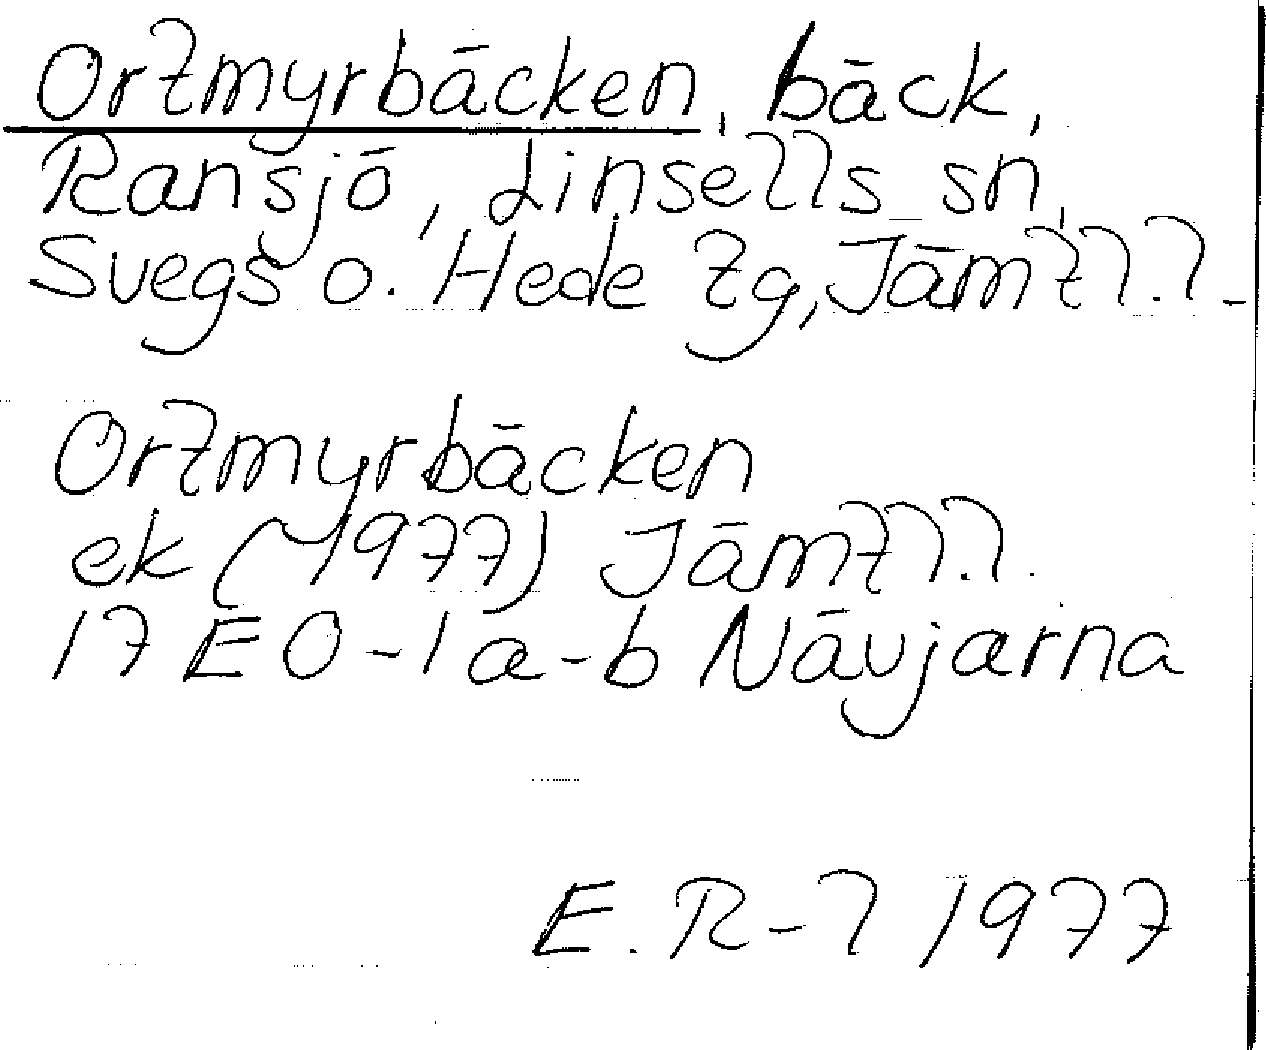 Ortmyrbäcken, bäck,
Ransjö, Linsells sn,
Svegs o. Hede tg, Jämtl. l.
Ortmyrbäcken
ek (1977) Jämtl. l.
17 E 0-1 a-b Nävjarna
E. R-l 1977